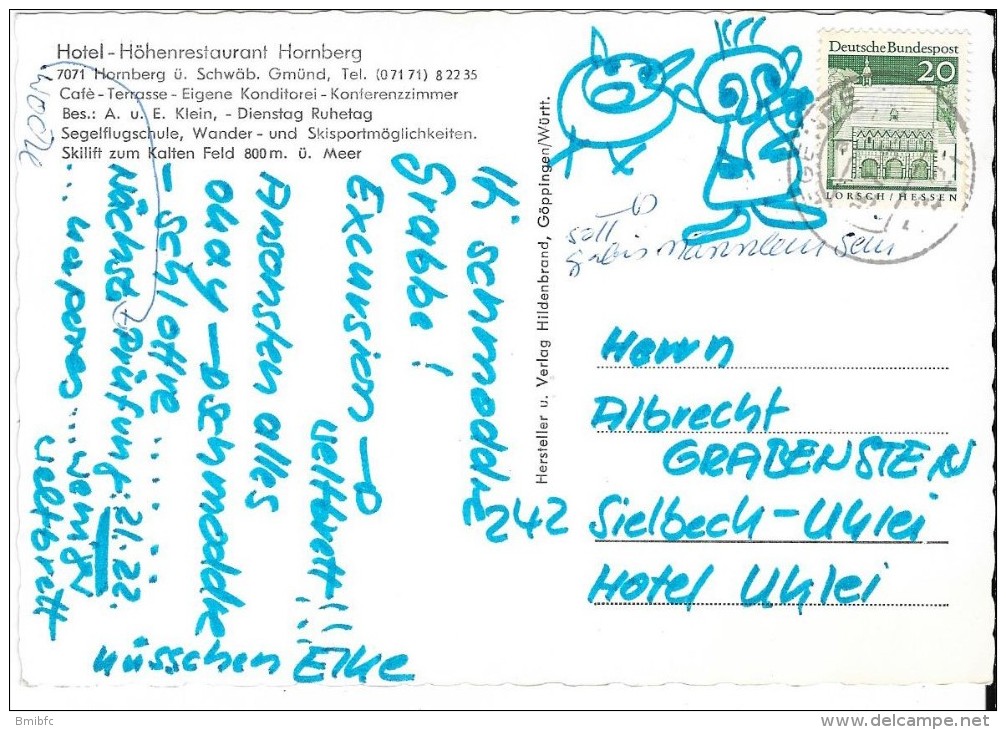 Hotel - Höhenrestaurant Hornberg
7071 Hornberg ü. Schwäb. Gmünd, Tel. (0 71 71) 8 22 35
Cafè - Terrasse - Eigene Konditorei - Konferenzzimmer
Bes.: A. u. E. Klein, - Dienstag Ruhetag
Segelflugschule, Wander - und Skisportmöglichkeiten.
Skilift zum Kalten Feld 800 m. ü. Meer
Woche
Grabbe!
Excursion →
Ansonsten alles
okay → schmodde
- Schlotte ........
Nächste Prüfung: 21. 22.
nüsschen Elke
Hersteller u. Verlag Hildenbrand, Göppingen/Württ.
Deutsche Bundespost
20
LORSCH / HESSEN
soll
sein
Herrn
Albrecht
GRABENSTEIN
242 Sielbeck-Uklei
Hotel Uklei
Bmibfc
www.delcampe.net